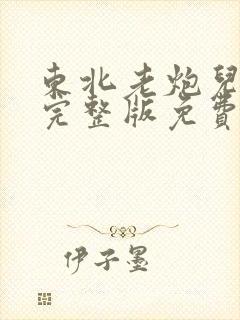 東北老炮兒
完整版免費
伊子墨